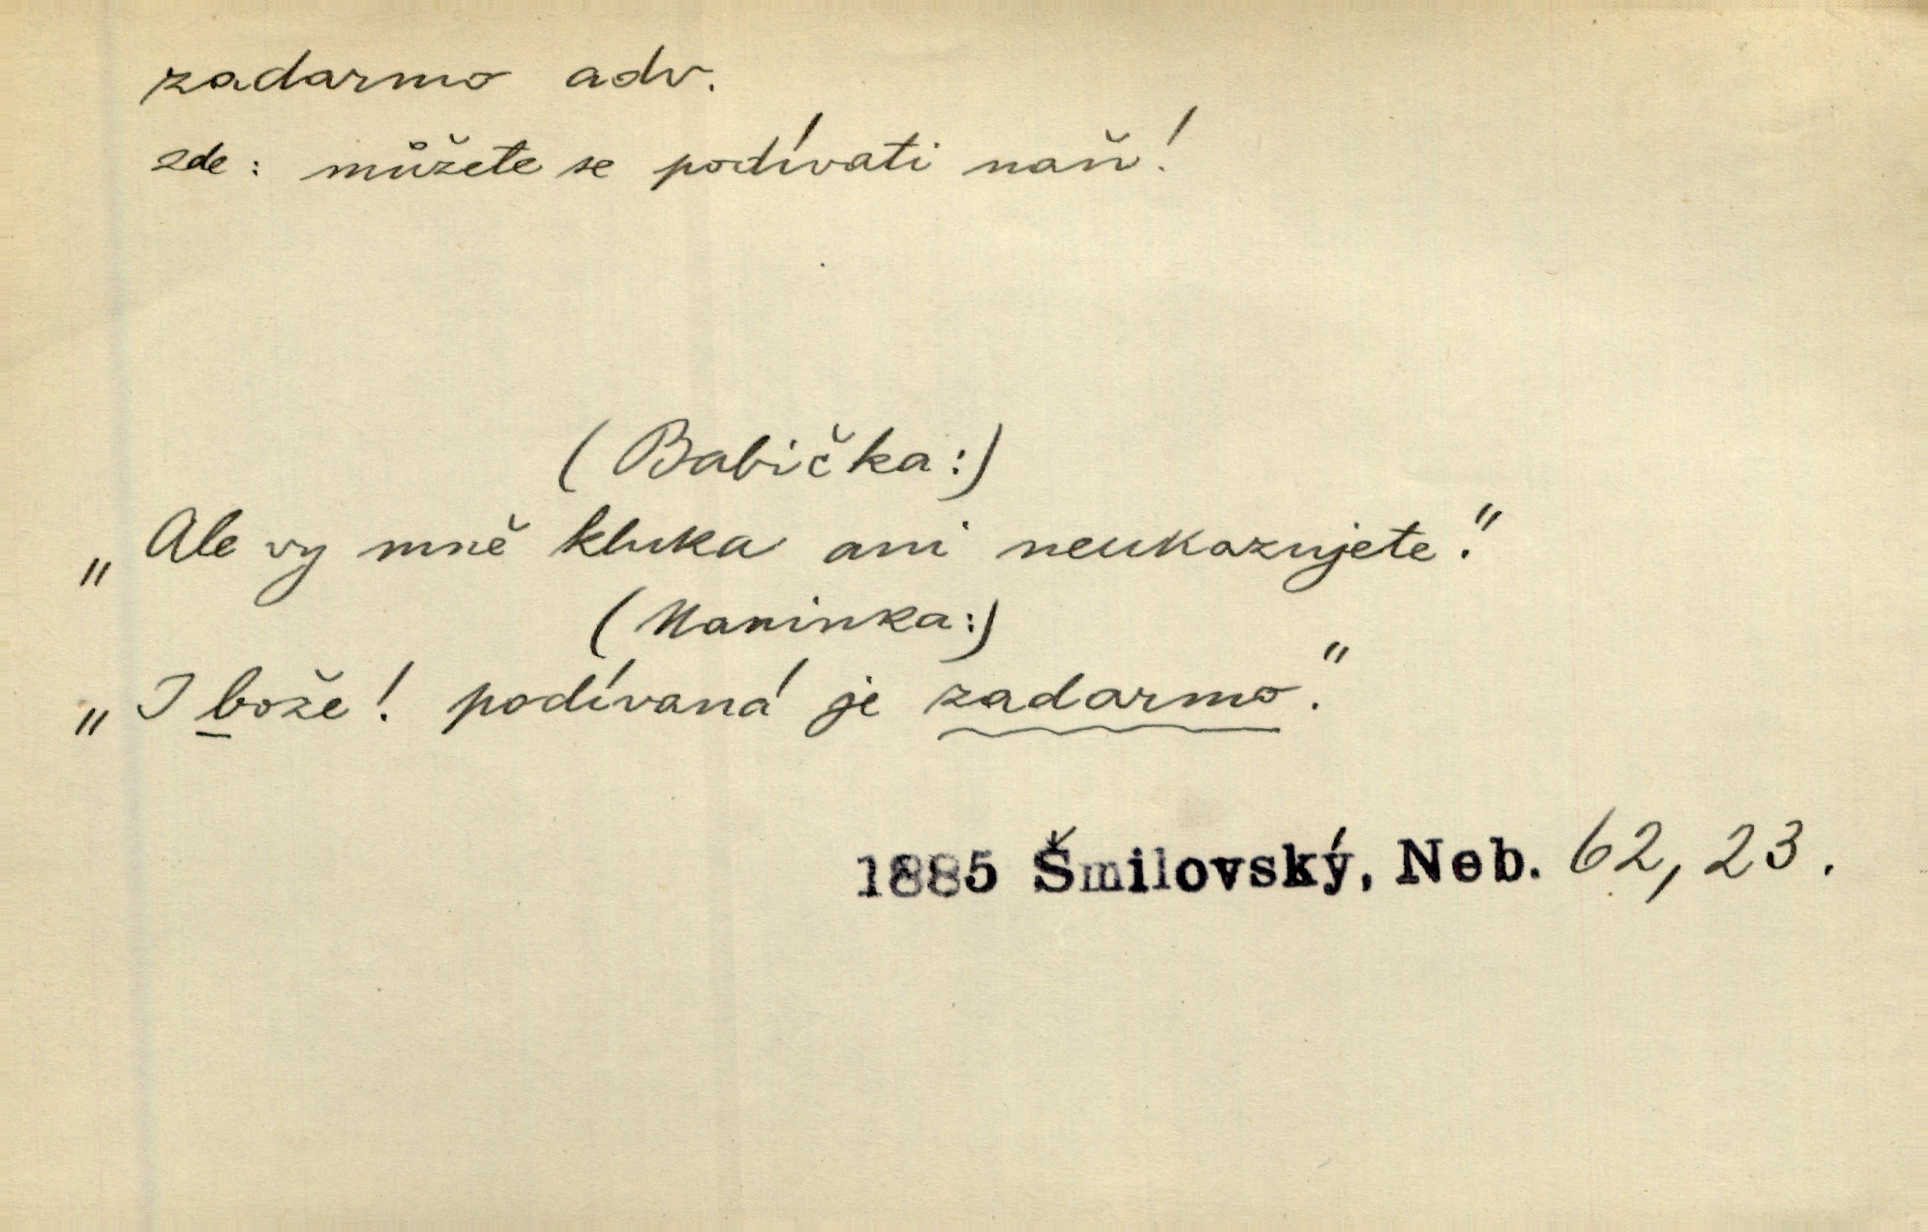 zadarmo adv.
zde: můžete se podívati naň!
(Babička:)
„Ale vy mně kluka ani neukazujete."
(Naninka:)
„I bože! podívaná je zadarmo."
1885 Šmilovský, Neb. 62, 23.